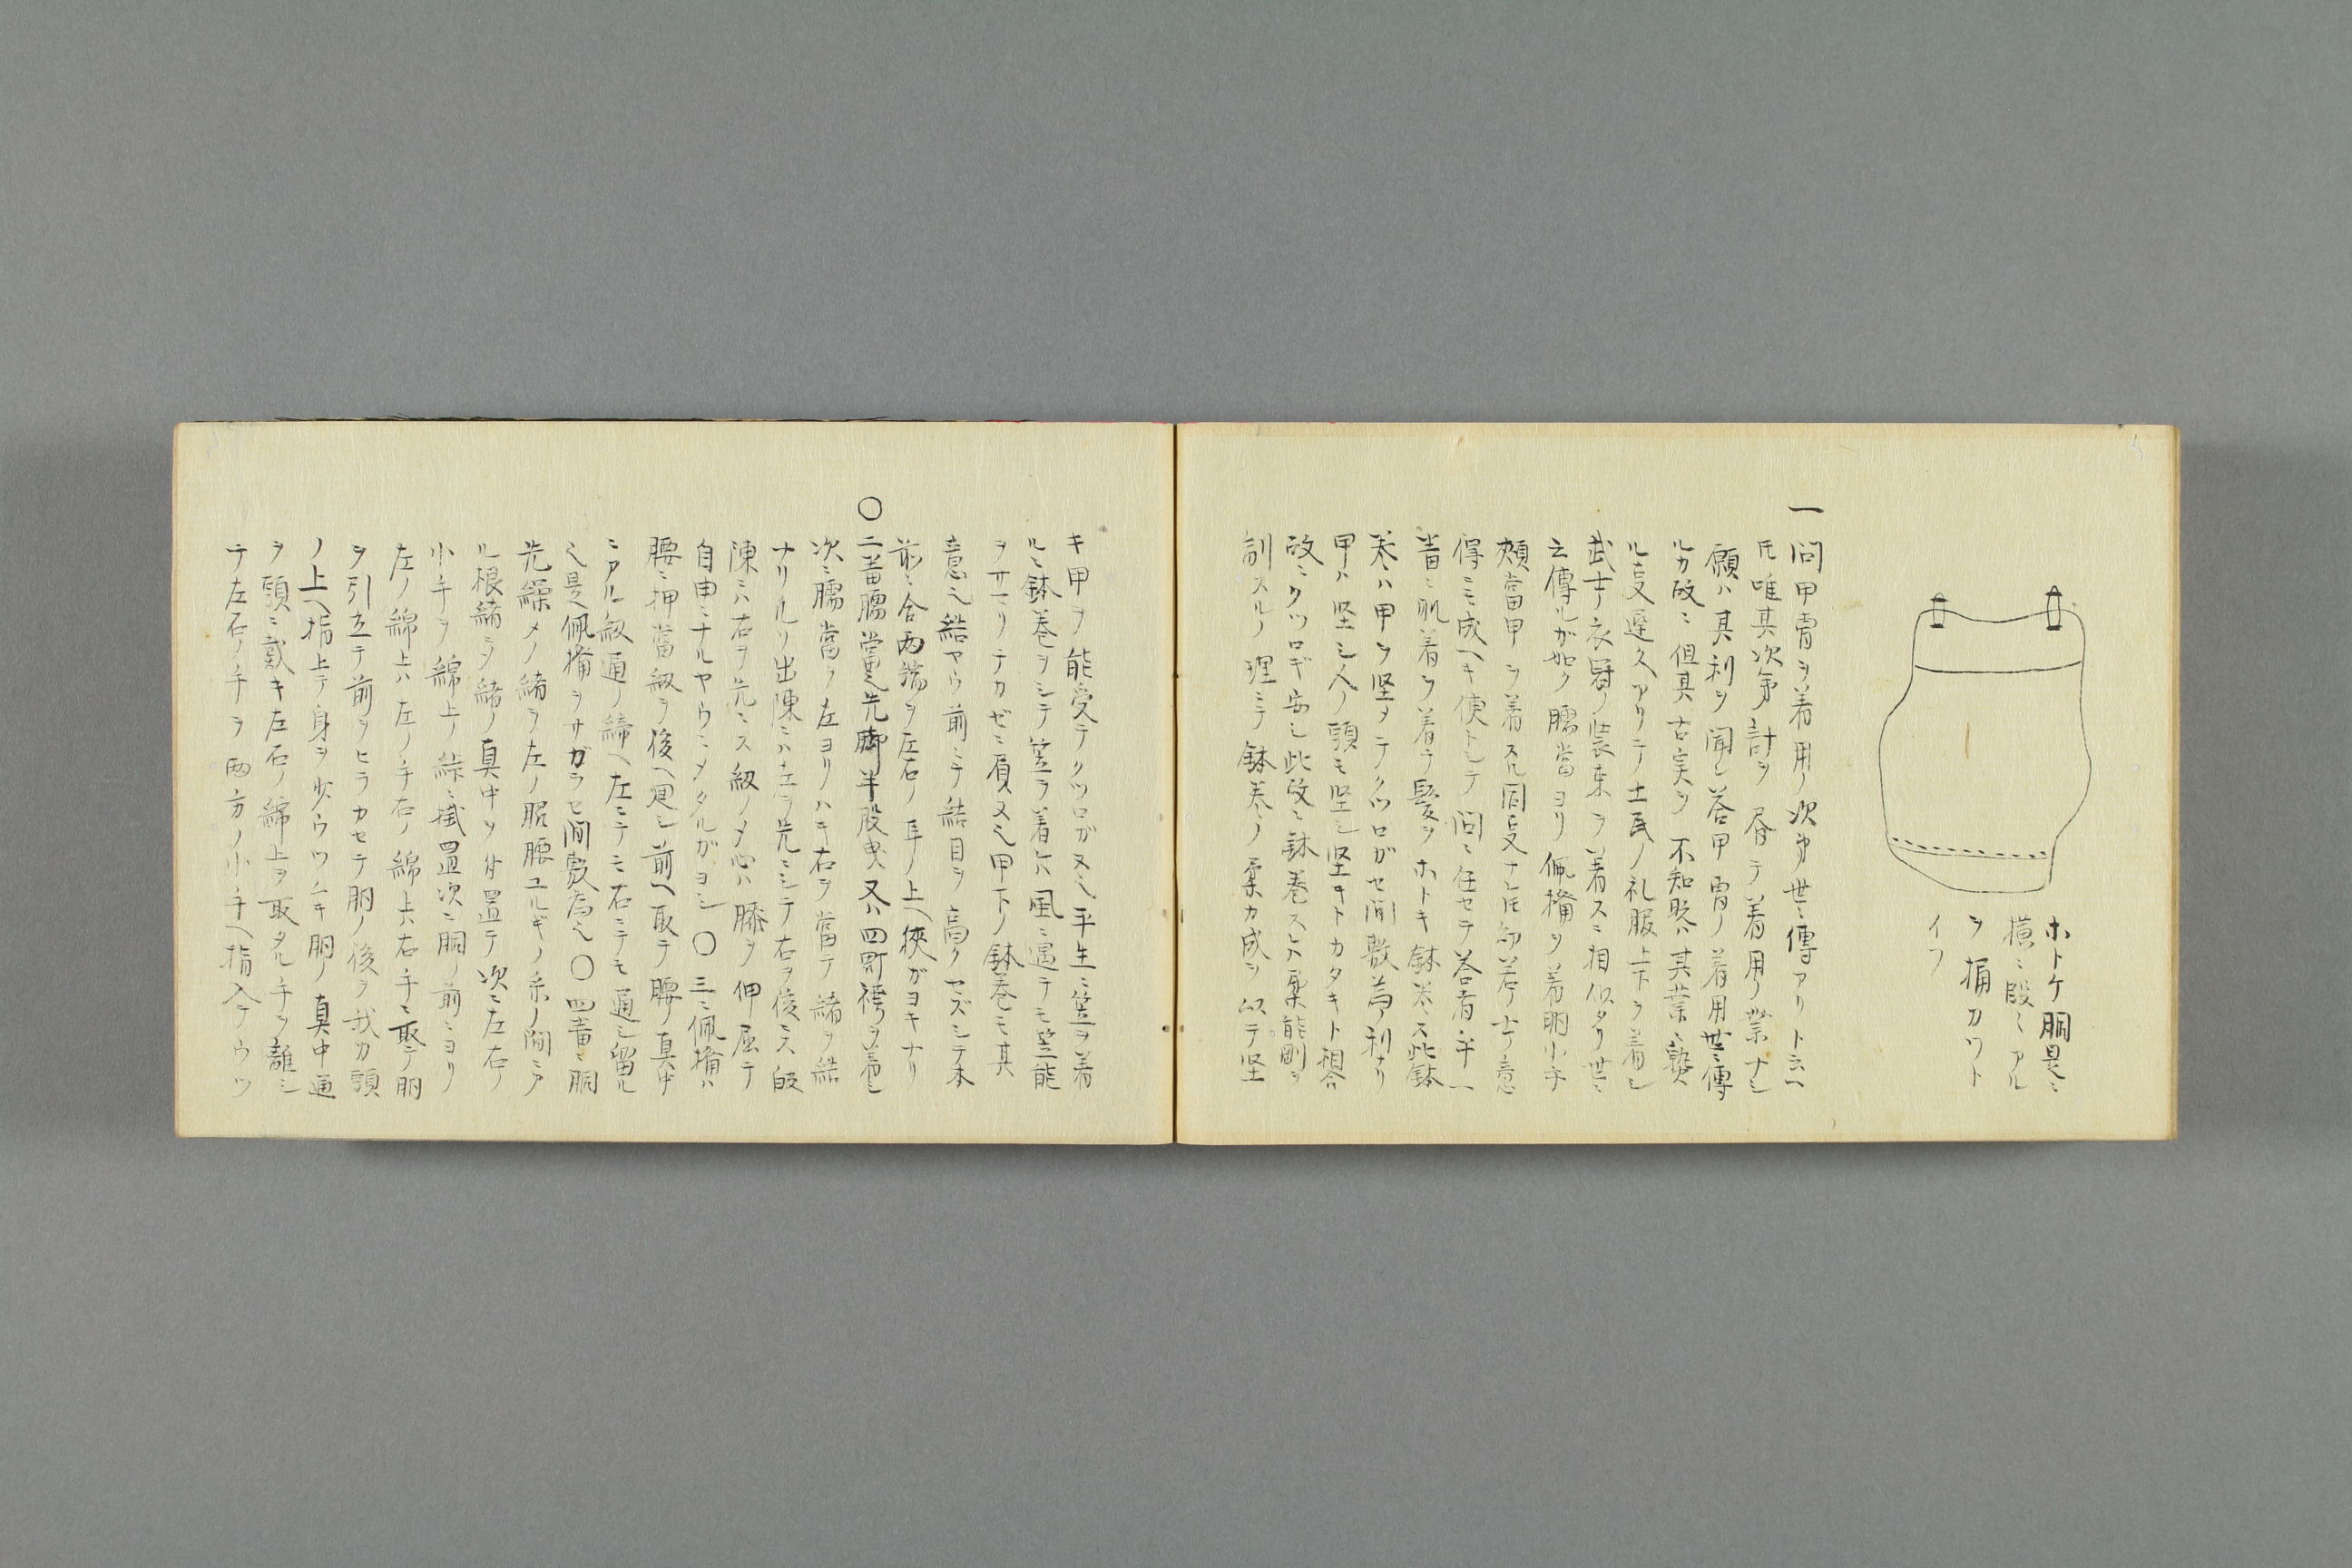 ホトケ胴是ニ
横ニ段々アル
ヲ桶カワト
イフ
一問甲冑ヲ着用ノ次第世ニ傳アリト云ヘ
𪜈唯其次第計ヲ 着用ノ業ナシ
願ハ其利ヲ聞ン答甲冑ノ着用世ニ傳
ルカ故ニ但其古実ヲ不知 ハ其業ニ熟
ル 遅久アリテノ土民ノ礼服上下ヲ着シ
武士ノ衣冠ノ装束ヲ着スニ相似タリ世ニ
云傳ルガ如ク臑當ヨリ佩楯ヲ着胴小手
頬當甲ヲ着スル同 ナレ𪜈 士ノ意
得ニモ成ヘキ便トシテ問ニ任セテ答者乎一
番ニ肌着ヲ着テ髪ヲホトキ鉢巻ス此鉢
巻ハ甲ヲ堅メテクツロガセ間敷為ノ利ナリ
甲ハ堅シ人ノ頭モ堅シ堅キトカタキト相合
故ニクツロギ安シ此故ニ鉢巻スレハ柔能剛ヲ
制スルノ理ニテ鉢巻ノ柔カ成ヲ以テ堅
キ甲ヲ能受テクツロガヌ也平生ニ笠ヲ着
ルニ鉢巻ヲシテ笠ヲ着レハ風ニ遇テモ笠能
ヲサマリテカゼニ負ヌ也甲下ノ鉢巻モ其
意也結ヤウ前ニテ結目ヲ高クセズシテ本
前ニ合両端ヲ左右ノ耳ノ上ヘ挾ガヨキナリ
〇二番臑當也先脚半股曳又ハ四 袴ヲ着シ
次ニ臑當ヲ左ヨリハキ右ヲ當テ緒ヲ結
ナリ 出陳ニハ左ヲ先ニシテ右ヲ後ニス皈
陳ニハ右ヲ先ニス紐ノメ心ハ膝ヲ伸屈テ
自由ニナルヤウニメタルガヨシ〇三ニ佩楯ハ
腰ニ押當紐ヲ後ヘ廻シ前ヘ取テ腰ノ真中
ニアル紐通ノ締ヘ左ニテモ右ニテモ通シ留ル
也是佩楯ヲサガラセ間敷為也〇四番ニ胴
先繰メノ緒ヲ左ノ脇腰ユルギノ糸ノ間ニア
ル根緒ヲ緒ノ真中ヲ付置テ次ニ左右ノ
小手ヲ綿上ノ ニ掛置次ニ胴ノ前ニヨリ
左ノ綿上ハ左ノ手右ノ綿上ハ右手ニ取テ胴
ヲ引立テ前ヲヒラカセテ胴ノ後ヲ我カ頭
ノ上ヘ指上テ身ヲ少ウツムキ胴ノ真中通
ヲ頭ニ戴キ左右ノ綿上ヲ取タル手ヲ離シ
テ左右ノ手ヲ両方ノ小手ヘ指入テウツ